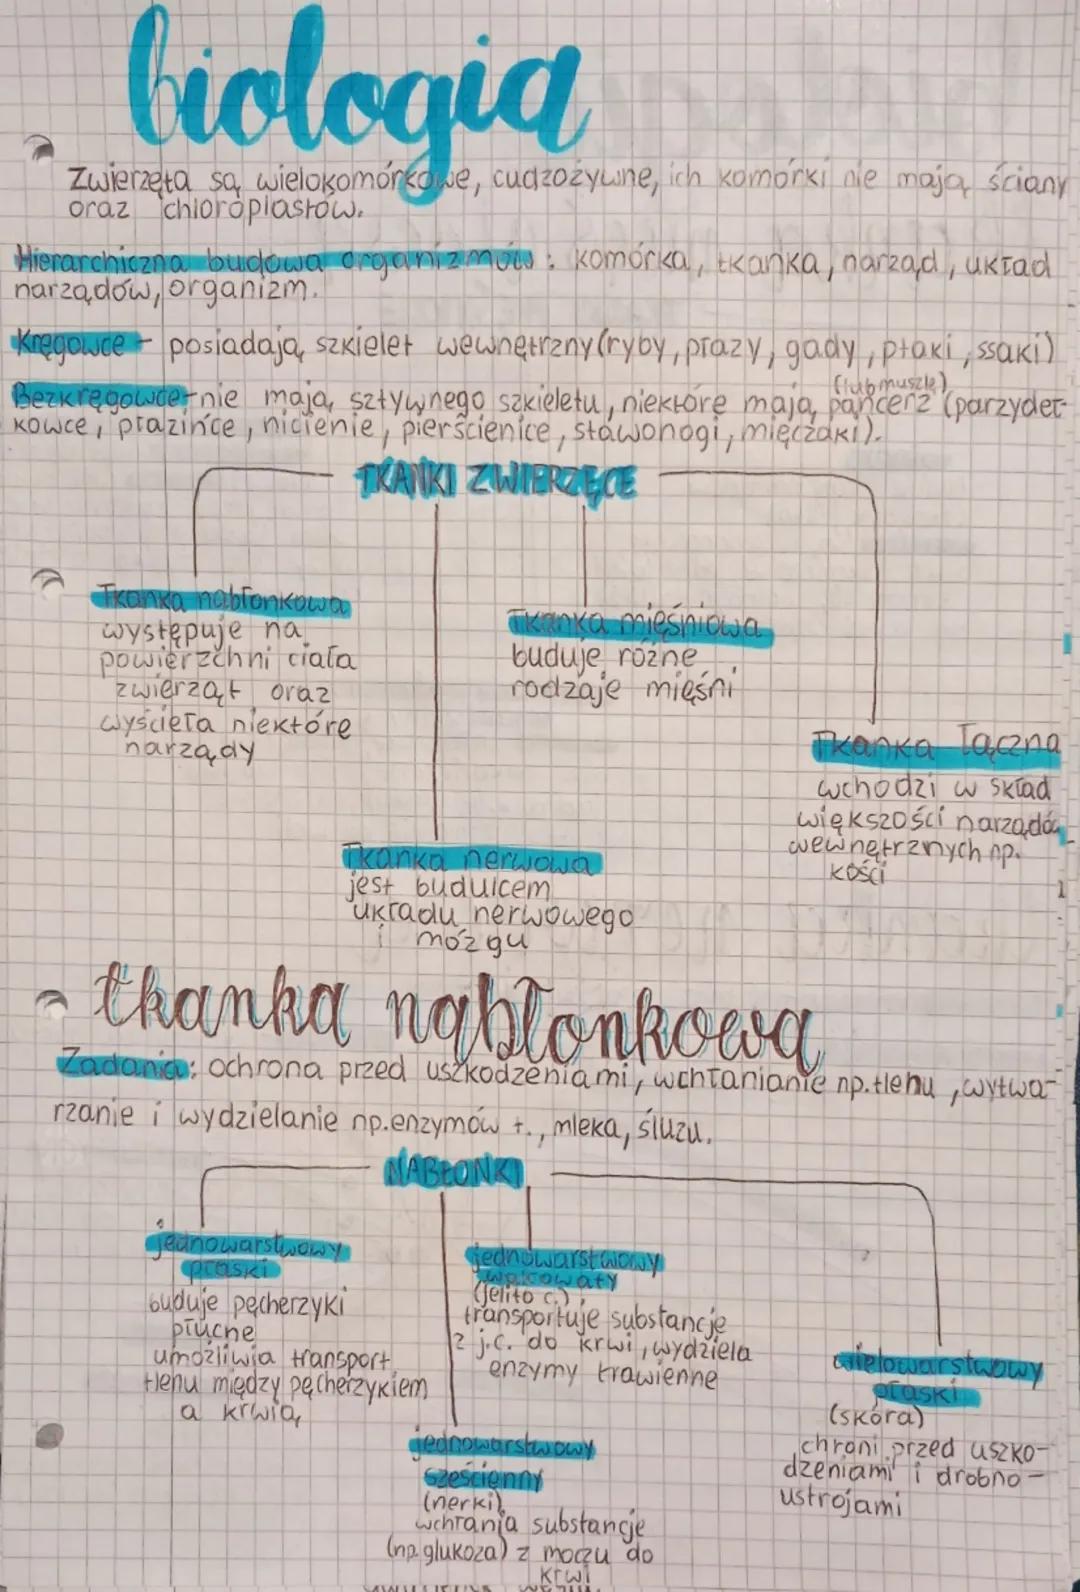 biologia
Zwierzęta są wielokomórkowe, cudzożywne, ich komórki nie mają ściany
oraz chloroplastów.
Hierarchiczna budowa organizmów: komórka, tkanka, narząd, układ
narządów, organizm.
Kręgowce - posiadają szkielet wewnętrzny (ryby, płazy, gady, ptaki, ssaki)
(lub muszle)
Bezkręgowce - nie mają sztywnego szkieletu, niektóre mają pancerz (parzydeł-
kowce, płazińce, nicienie, pierścienice, stawonogi, mięczaki).
TKANKI ZWIERZĘCE
Tkanka nabłonkowa
występuje na
powierzchni ciała
zwierząt oraz
wyścieła niektóre
narządy
Tkanka mięśniowa
buduje różne
rodzaje mięśni
Tkanka łączna
wchodzi w skład
większości narządów
wewnętrznych np.
kości
Tkanka nerwowa
jest budulcem
układu nerwowego
i mózgu
tkanka nabłonkowa
Zadania: ochrona przed uszkodzeniami, wchłanianie np. tlenu, wytwa-
rzanie i wydzielanie np. enzymów t., mleka, śluzu.
NABŁONKI
jednowarstwowy
płaski
buduje pęcherzyki
płucne
umożliwia transport
tlenu między pęcherzykiem
a krwią
jednowarstwowy
walcowaty
(jelito c.)
transportuje substancje
z j.c. do krwi, wydziela
enzymy trawienne
wielowarstwowy
płaski
(skóra)
chroni przed uszko-
dzeniami i drobno-
ustrojami
jednowarstwowy
sześcienny
(nerki)
wchłania substancje
(np. glukoza) z moczu do
krwi